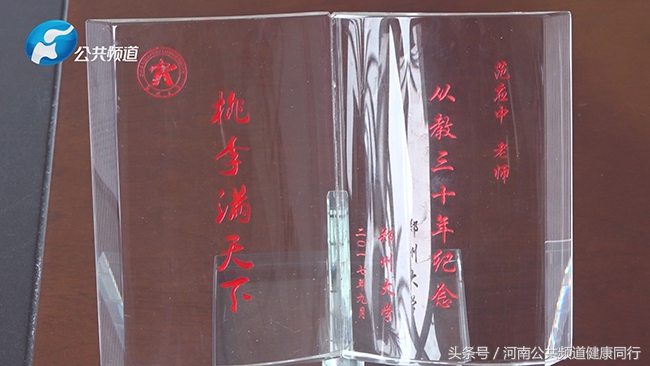 公共频道
范应中 老师
从教三十年纪念
郑州大学
二〇一七年九月
桃李满天下
头条号 / 河南公共频道健康同行